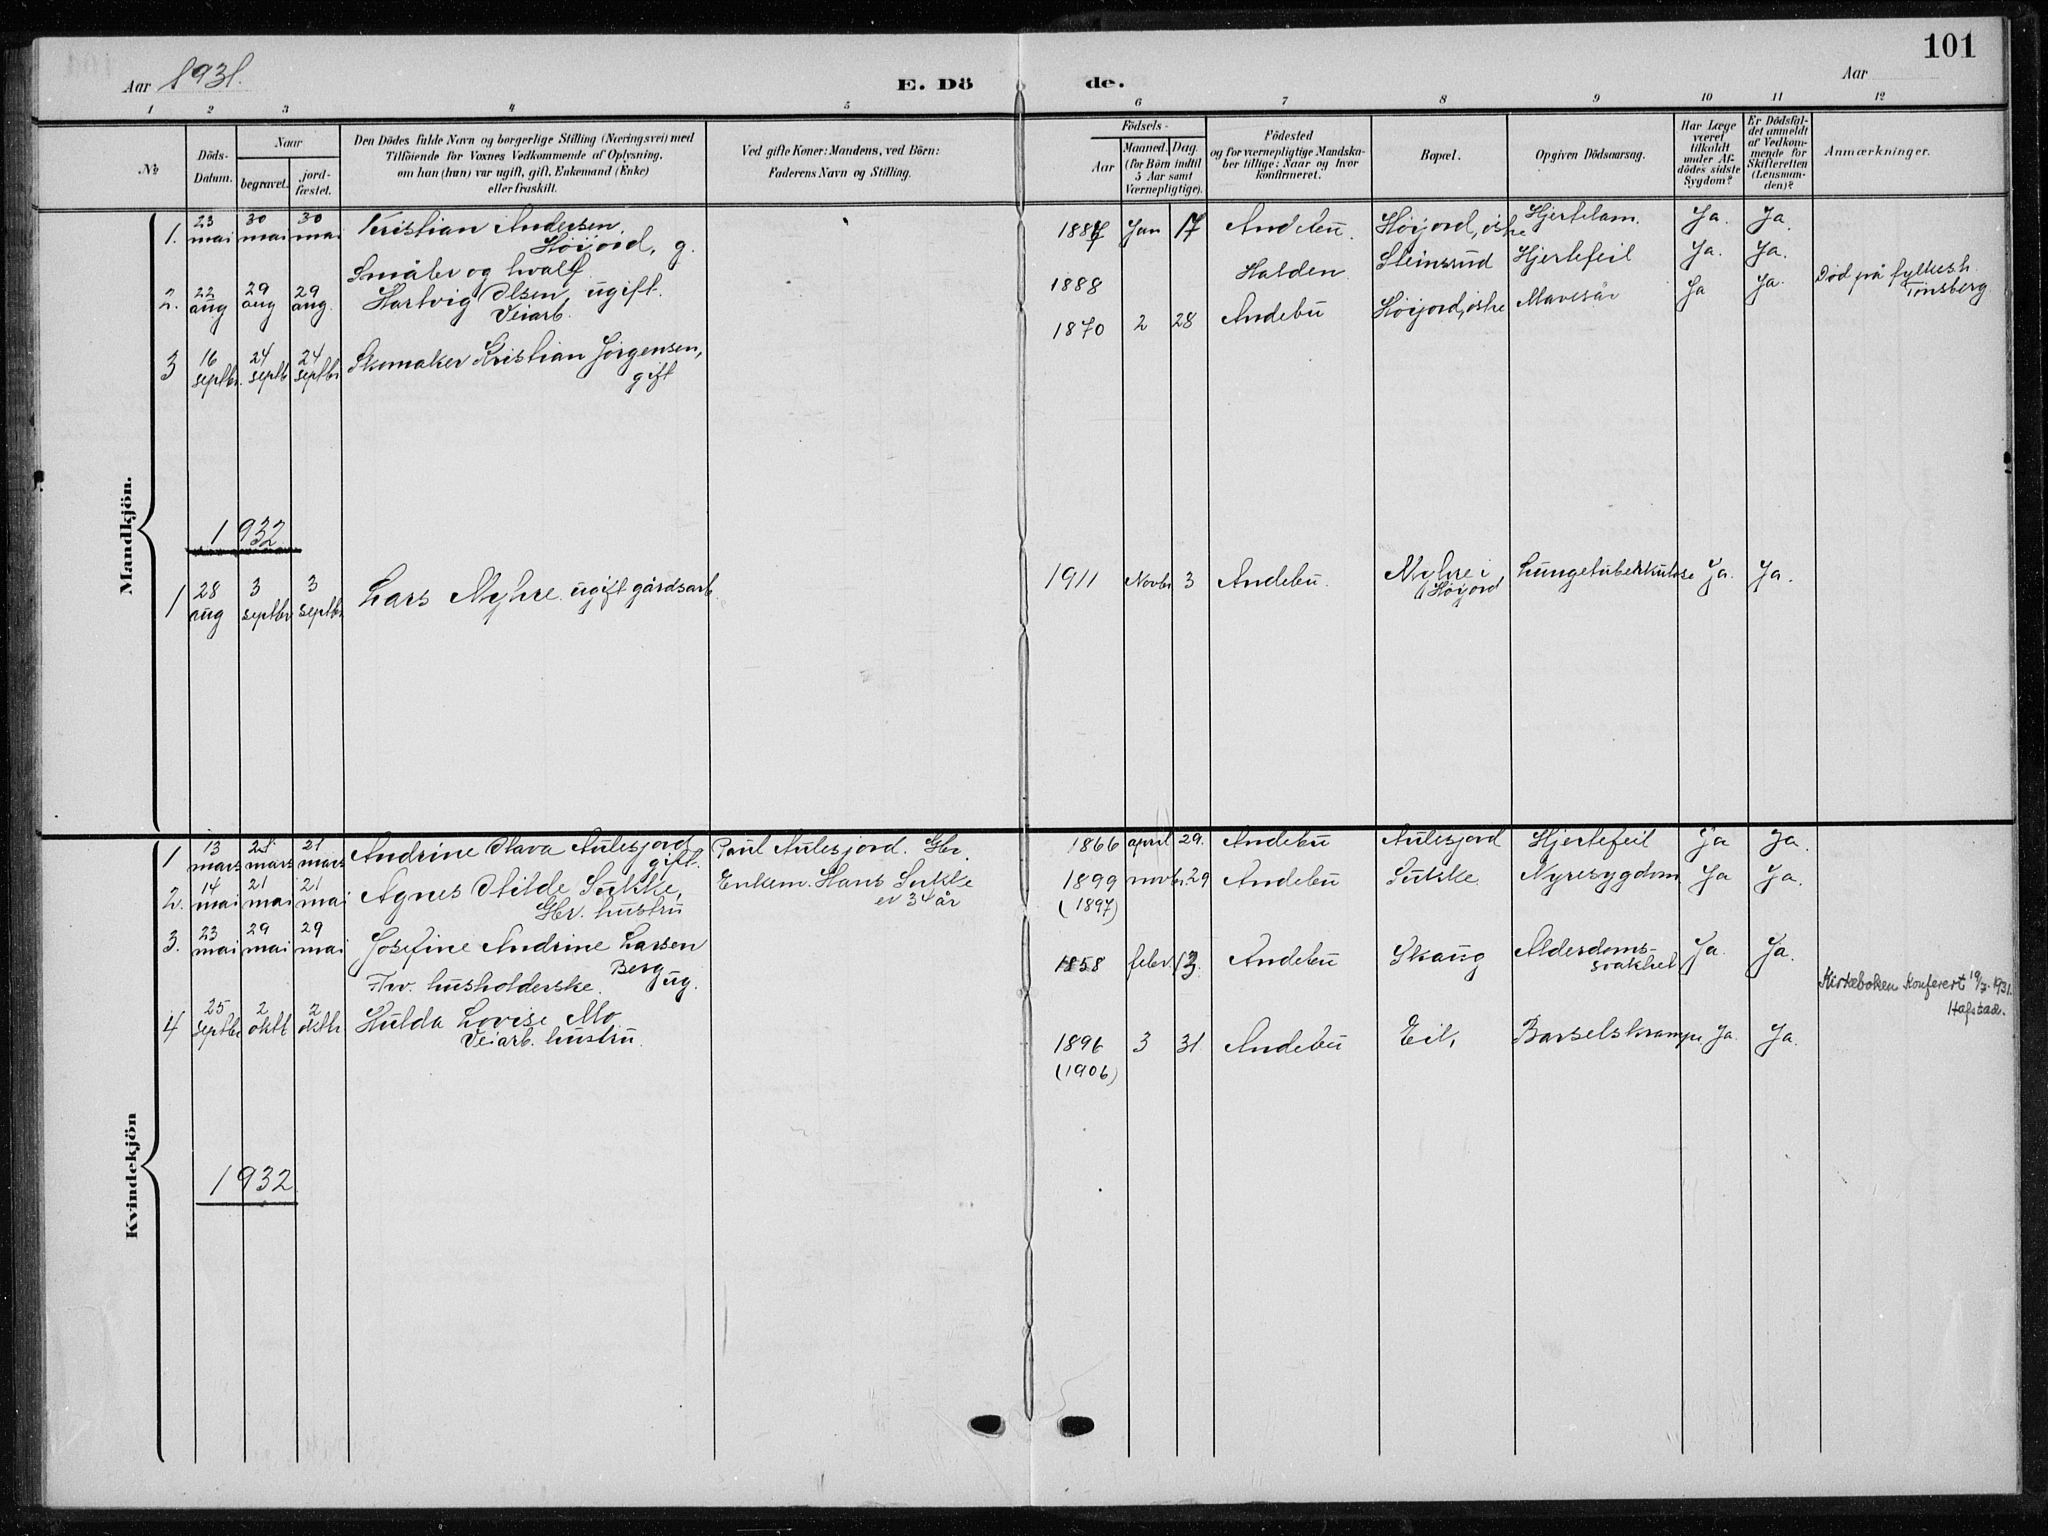 101
Aar 1931. E. Dö de. Aar
1 2 3 4 5 6 7 8 9 10 11 12
No
Döds-
Datum.
Naar
begravet.
jord-
fæstet.
Den Dödes fulde Navn og borgerlige Stilling (Næringsvei) med
Tilföiende for Voxnes Vedkommende af Oplysning,
om han (hun) var ugift, gift, Enkemand (Enke)
eller fraskilt.
Ved gifte Koner: Mandens, ved Börn:
Faderens Navn og Stilling.
Födsels-
Aar
Maaned. Dag.
(for Börn indtil
5 Aar samt
Værnepligtige).
Födested
og for værnepligtige Mandska-
ber tillige: Naar og hvor
konfirmeret.
Bopæl.
Opgiven Dödsaarsag.
Har Læge
været
tilkaldt
under Af-
dödes sidste
Sygdom?
Er Dödsfal-
det anmeldt
af Vedkom-
mende for
Skifteretten
(Lensman-
den)?
Anmærkninger.
Mandkjön.
1. 23 mai 30 mai 30 mai Kristian Andersen
Höijord, g.
Småbr og hvalf.
Jan 17 Andebu. Höijord, östre Hjertelam. Ja. Ja.
2. 22 aug 29 aug 29 aug. Hartvig Olsen ugift.
Veiarb.
1888 Halden Steinsrud Hjertefeil Ja. Ja. Död på fylkesh.
Tönsberg.
3 16 septbr. 24 septb 24 septbr Skomaker Kristian Jörgensen,
gift
1870 2 28 Andebu Höijord, östre Mavesår Ja Ja.
1932
1 28 aug 3 septbr 3 septbr Lars Myhre ugift gårdsarb.
1911 Novbr 3 Andebu. Myhre i
Höijord
Lungetuberkulose Ja. Ja.
Kvindekjön
1 13 mars mars 21 mars Andrine Olava Aulesjord
gift.
Paul Aulesjord. Gbr.
1866 april 29. Andebu Aulesjord Hjertefeil Ja Ja.
2. 14 mai 21 mai 21 mai Agnes Hilde Sukke,
Gbr. hustru
Enkem. Hans Sukke
er 34 år
1899 novbr. 29 Andebu Sukke Nyresygdom Ja Ja.
(1897)
3. 23 mai 29 mai 29 mai Josefine Andrine Larsen
Berg ug.
Fhv. husholderske.
1858 febr. 13. Andebu Skaug Alderdoms-
svakhet
Ja. Ja.
Kirkeboken konferert 1931.
Hafstad.
4 25 septbr 2 oktb 2 oktb Hulda Lovise Mo
Veiarb. hustru.
1896 3 31. Andebu Eik, Barselskrampe Ja. Ja.
(1906)
1932